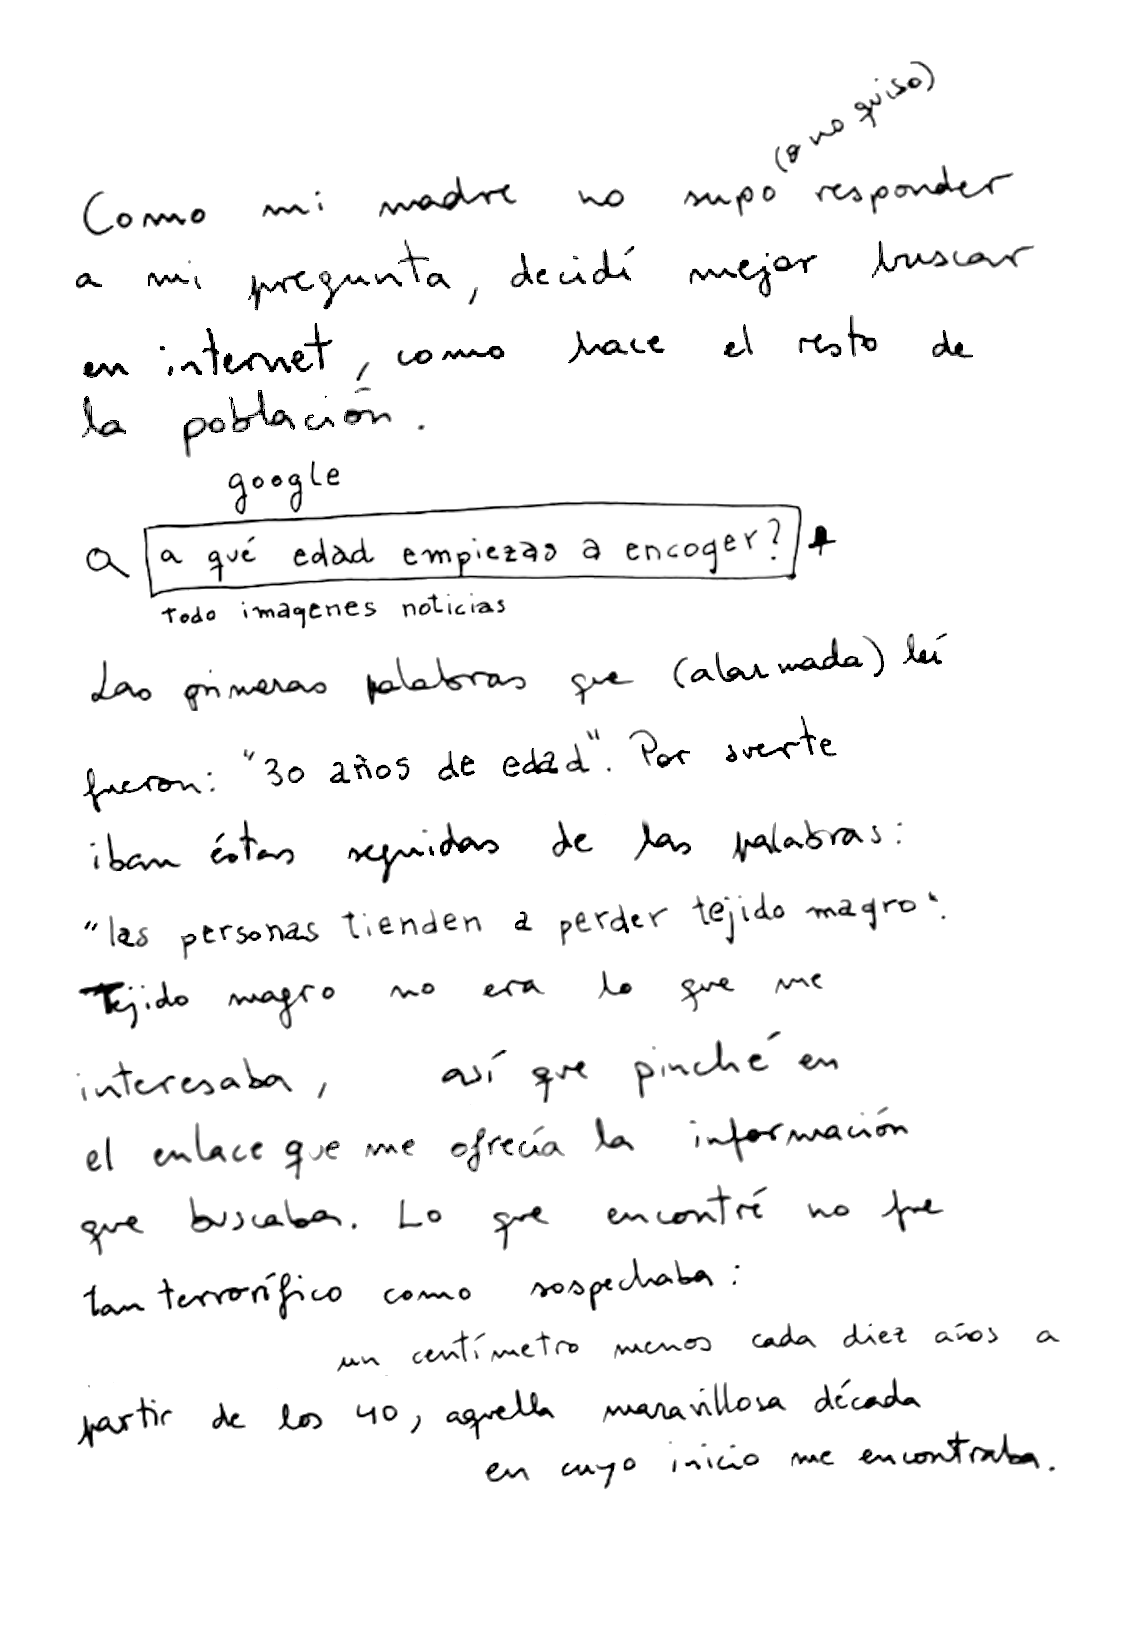 (o no quiso)
Como mi madre no supo responder
a mi pregunta, decidí mejor buscar
en internet, como hace el resto de
la población.
google
a qué edad empiezas a encoger?
Todo imagenes noticias
Las primeras palabras que (alarmada) leí
fueron: "30 años de edad". Por suerte
iban éstas seguidas de las palabras:
"las personas tienden a perder tejido magro".
Tejido magro no era lo que me
interesaba, así que pinché en
el enlace que me ofrecía la información
que buscaba. Lo que encontré no fue
tan terrorífico como sospechaba:
un centímetro menos cada diez años a
partir de los 40, aquella maravillosa década
en cuyo inicio me encontraba.